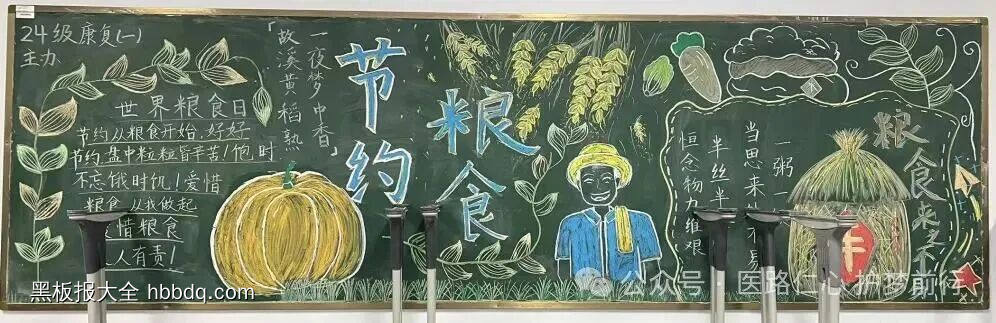 24级康复(一)
主办
世界粮食日
节约从粮食开始,好好
节约,盘中粒粒皆辛苦!饱时
不忘饿时饥!爱惜
粮食 从我做起
惜粮食
人有责!
「故溪黄稻熟
一夜梦中香」
节约
粮食
一粥一
当思来
不易
半丝半
恒念物力维艰
粮食来之不易
丰
黑板报大全 hbbdq.com
公众号·医路仁心护梦前行